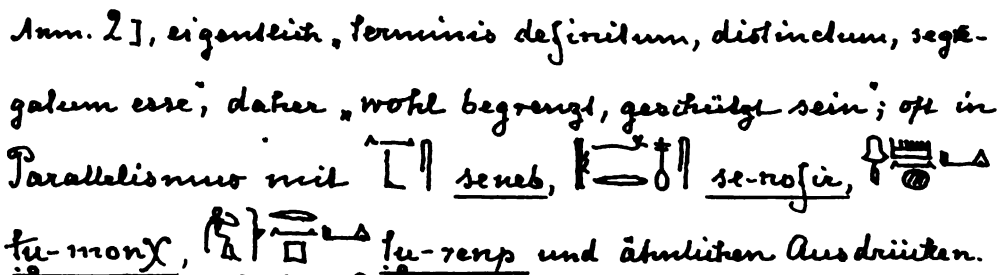 Anm. 2], eigentlich „terminis definitum, distinctum, segre-
gatum esse“, daher „wohl begrenzt, geschützt sein“; oft in
Parallelismus mit seneb, se-nofir,
tu-monχ, tu-renp und ähnlichen Ausdrücken.